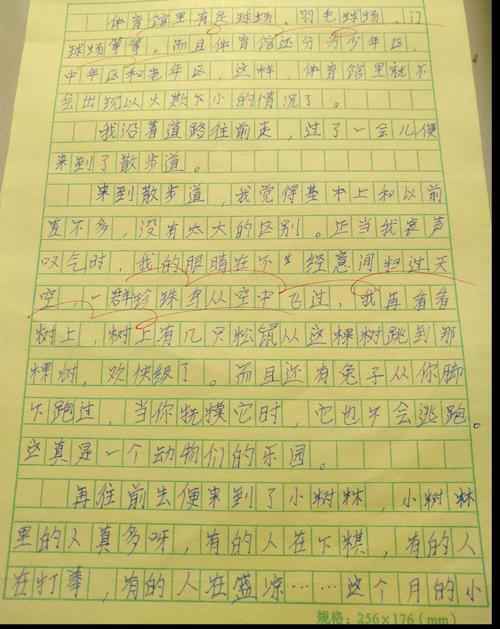 体育馆里有足球场、羽毛球场、门
球场等等。而且体育馆还分为少年区,
中年区和老年区,这样,体育馆里就不
会出现以大欺下小的情况了。
我沿着道路往前走,过了一会儿便
来到了散步道。
来到散步道,我觉得基本上和以前
差不多,没有太大的区别。正当我哀声
叹气时,我的眼睛在不经意间扫过天
空,一群珍珠鸟从空中飞过,我再看看
树上,树上有几只松鼠从这棵树跳到那
棵树,欢快级了。而且还有兔子从你脚
下跑过,当你抚摸它时,它也不会逃跑。
这真是一个动物们的乐园。
再往前去便来到了小树林,小树林
里的人真多呀,有的人在下棋,有的人
在打拳,有的人在盛凉……这个月的小
规格:256×176(mm)